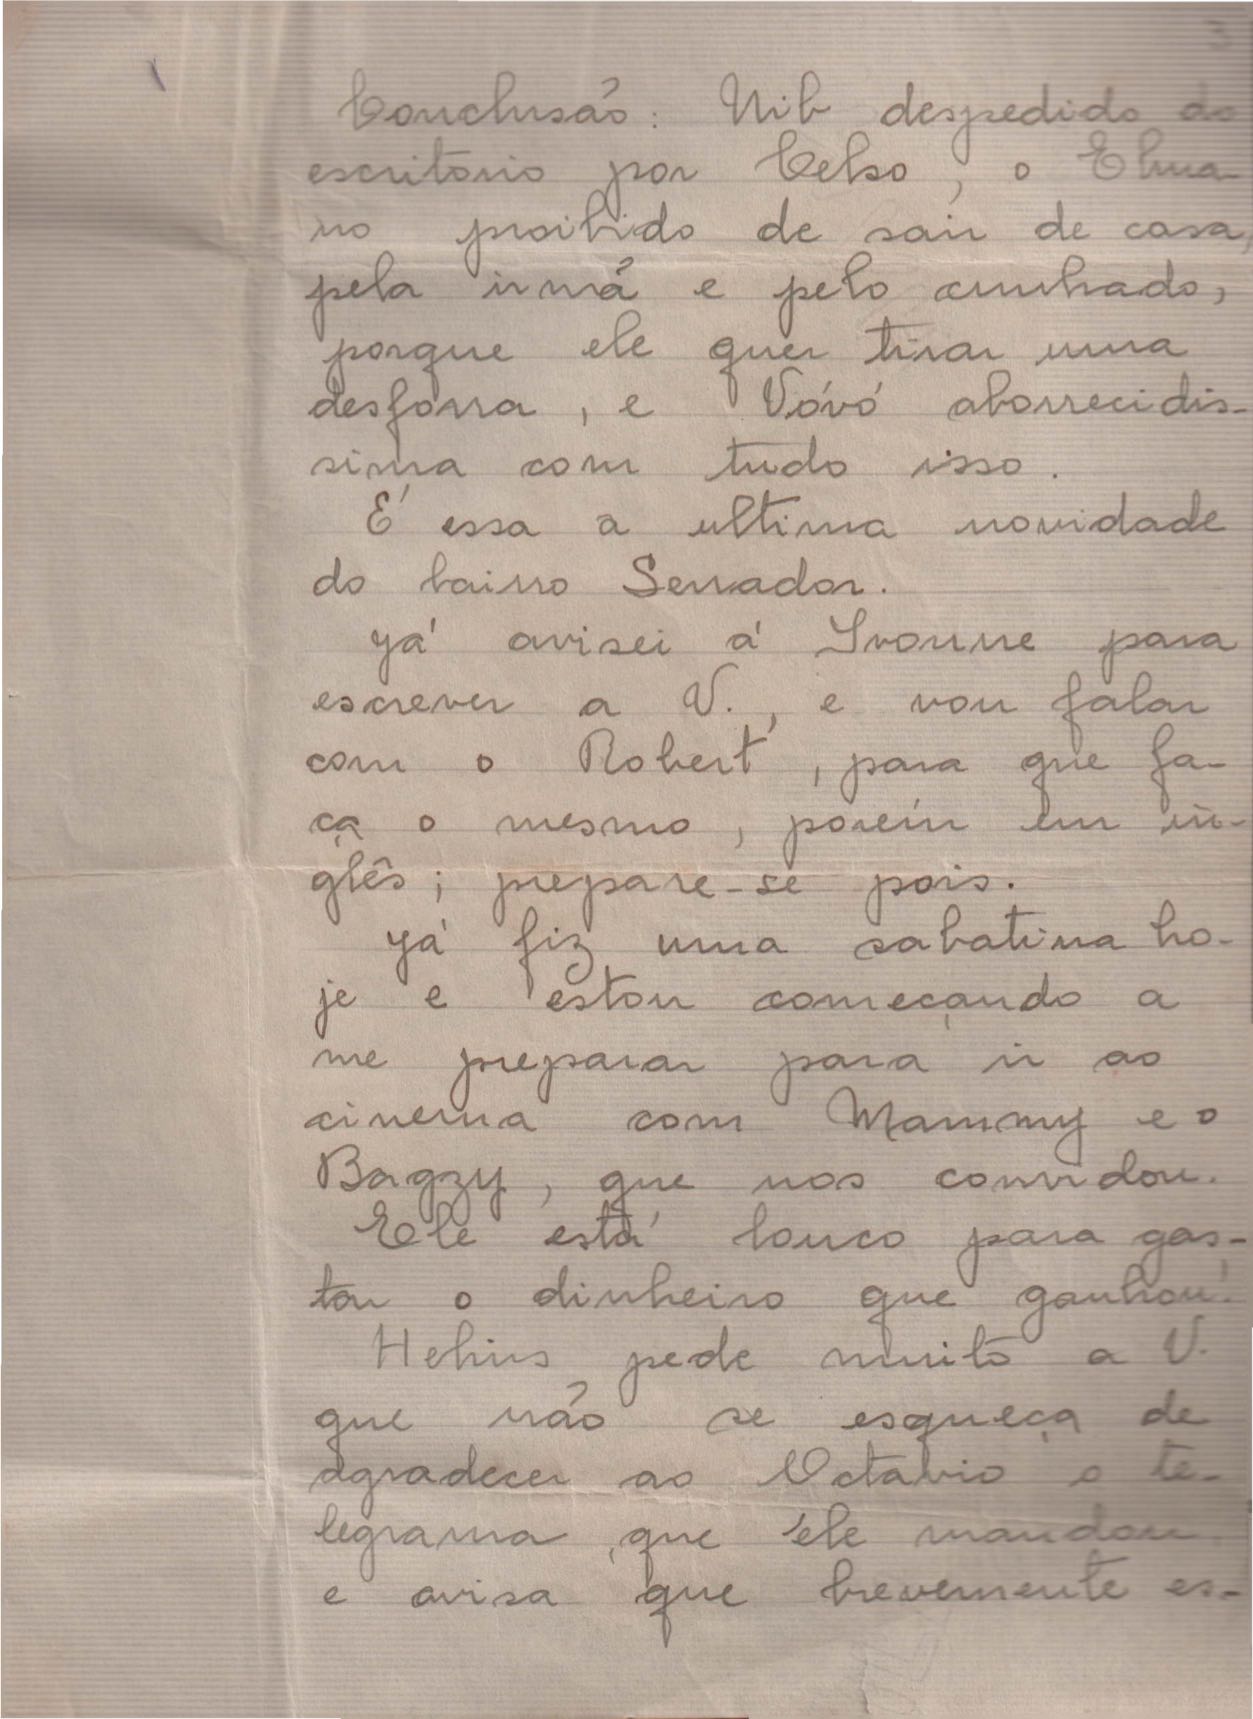 3
Conclusão: Nib despedido do
escritorio por Celso, o Elma-
no proibido de sair de casa,
pela irmã e pelo cunhado,
porque ele quer tirar uma
desforra, e Vóvó aborrecidis-
sima com tudo isso.
É essa a ultima novidade
do bairro Serrador.
Já avisei á Ivonne para
escrever a V., e vou falar
com o Robert, para que fa-
ça o mesmo, porém em in-
glês; prepare-se pois.
Já fiz uma sabatina ho-
je e estou começando a
me preparar para ir ao
cinema com Mammy e o
Bagzy, que nos convidou.
Ele está louco para gas-
tar o dinheiro que ganhou!
Helius pede muito a V.
que não se esqueça de
agradecer ao Octavio o te-
legrama, que êle mandou
e avisa que brevemente es-